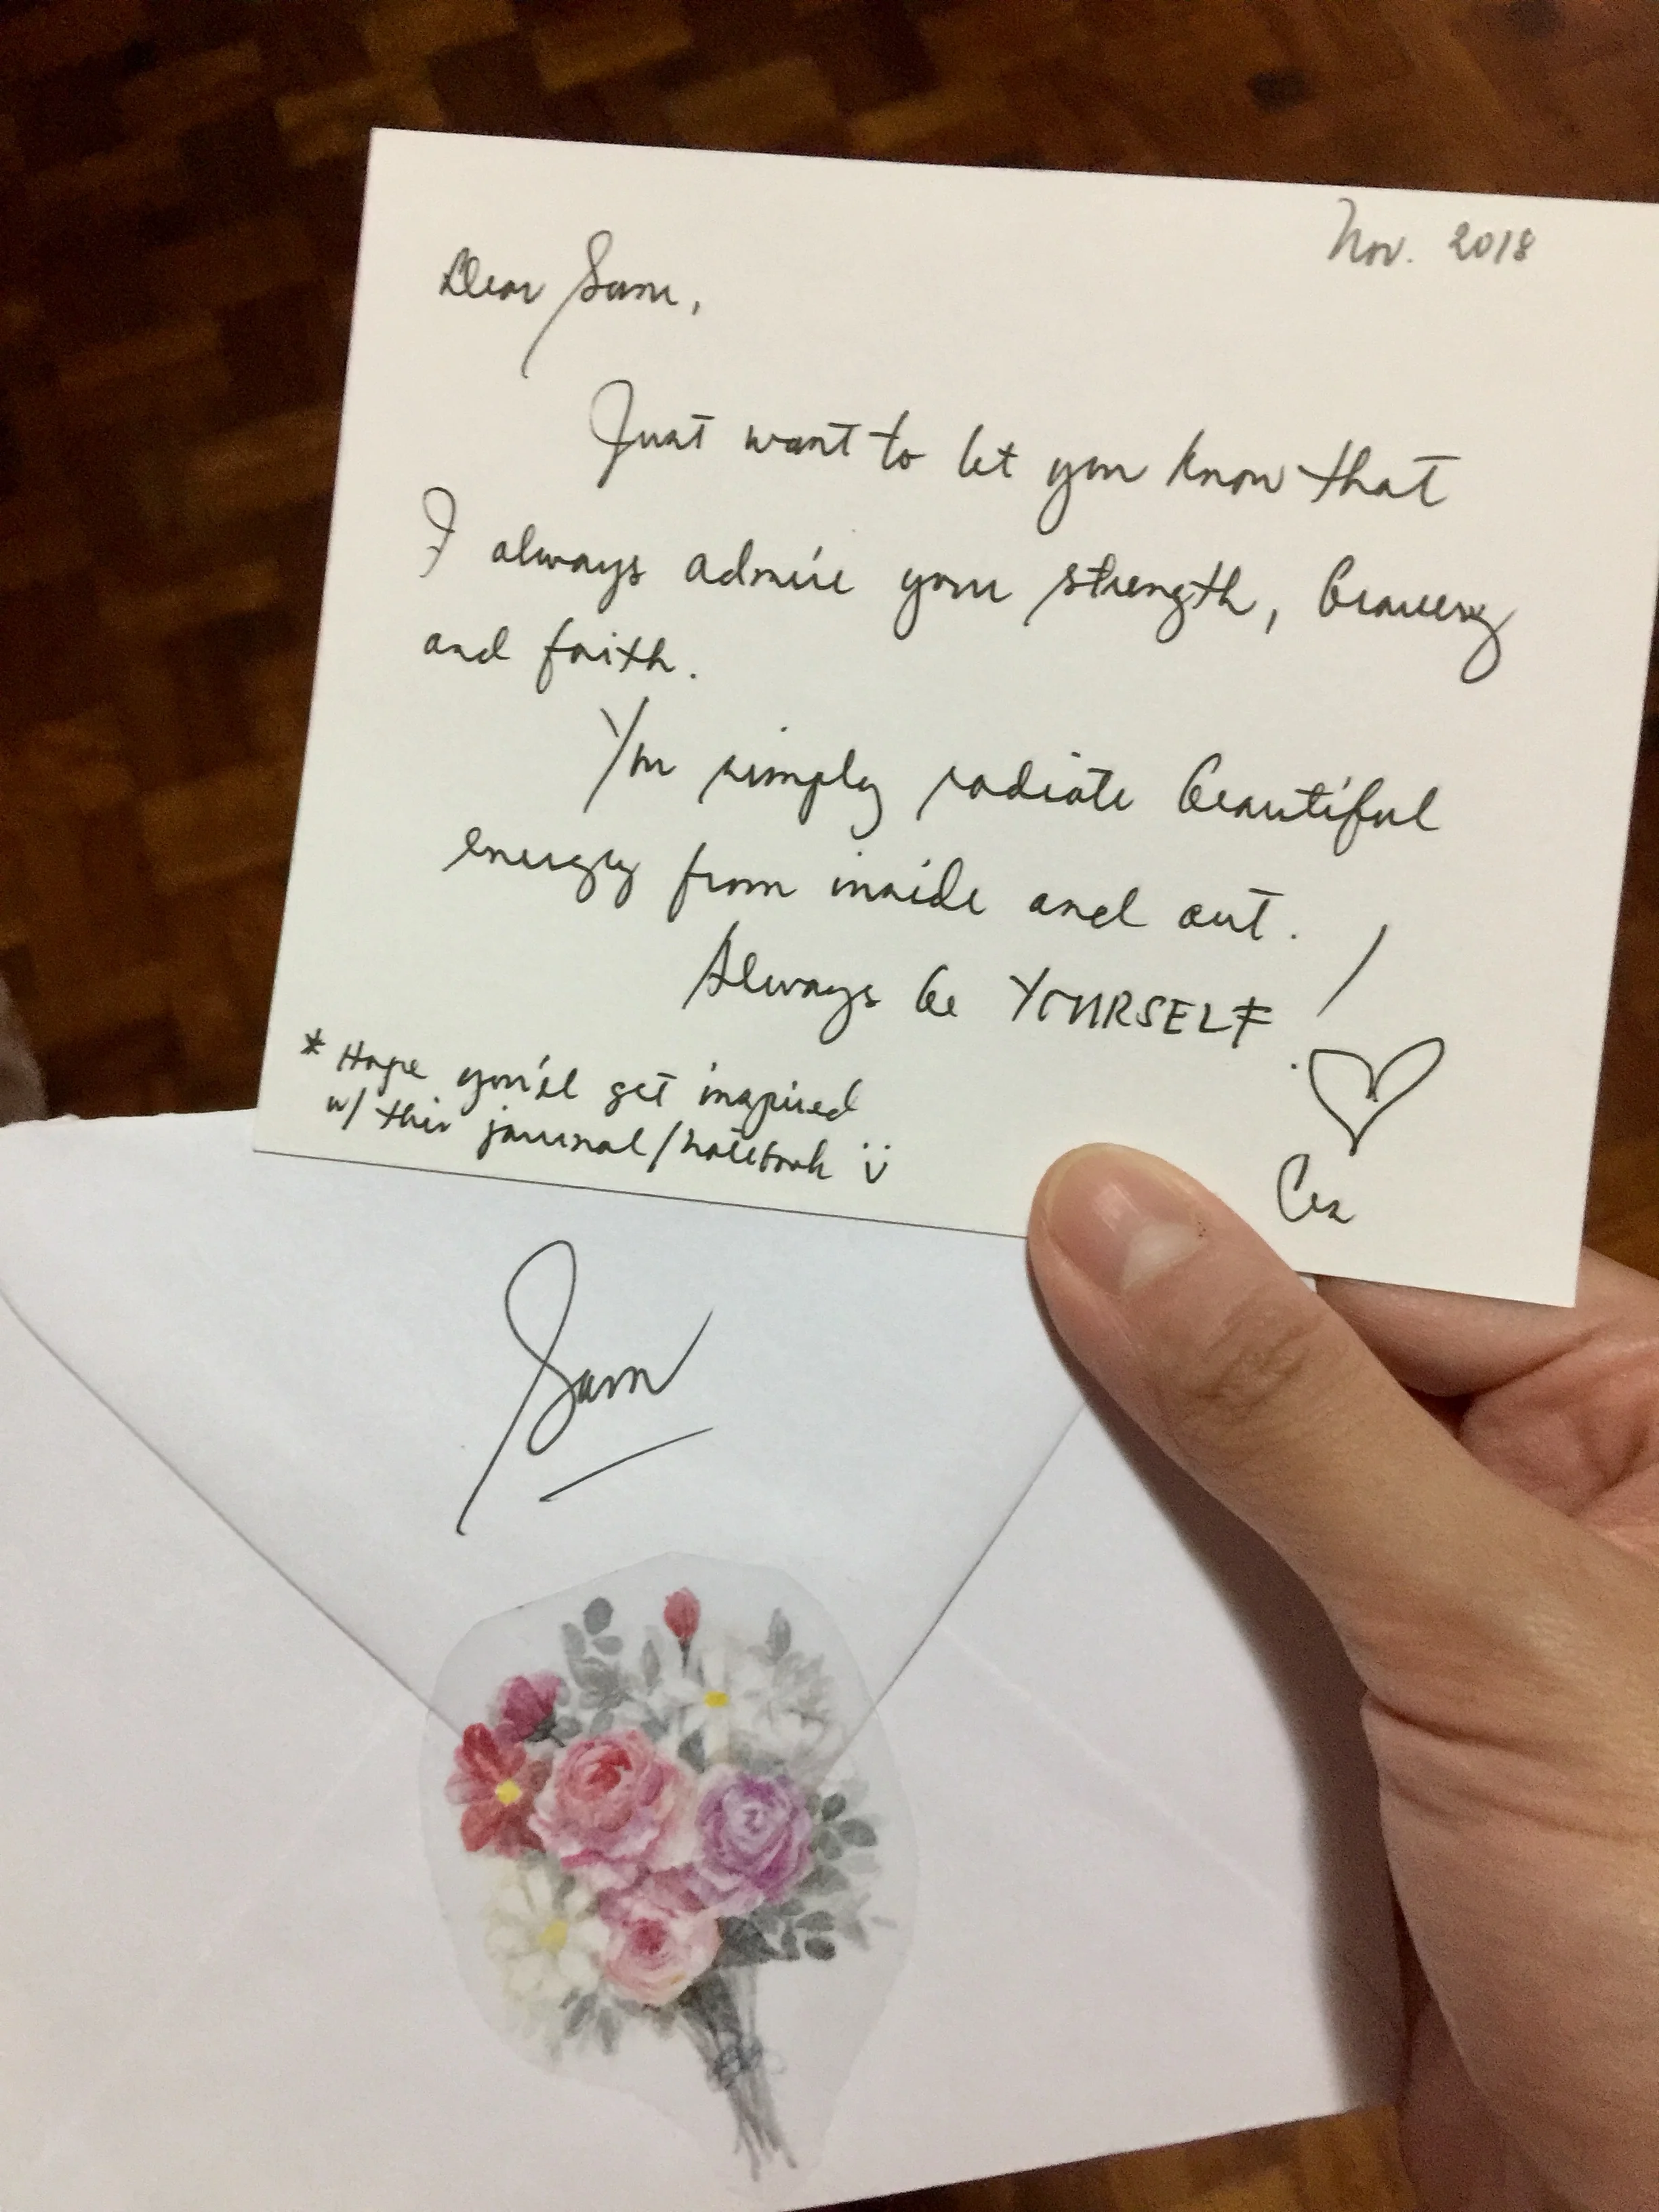 Nov. 2018
Dear Sam,
Just want to let you know that
I always admire your strength, bravery
and faith.
You simply radiate beautiful
energy from inside and out.
Always be YOURSELF!
* Hope you'll get inspired
w/ this journal/notebook :)
Cez
Sam